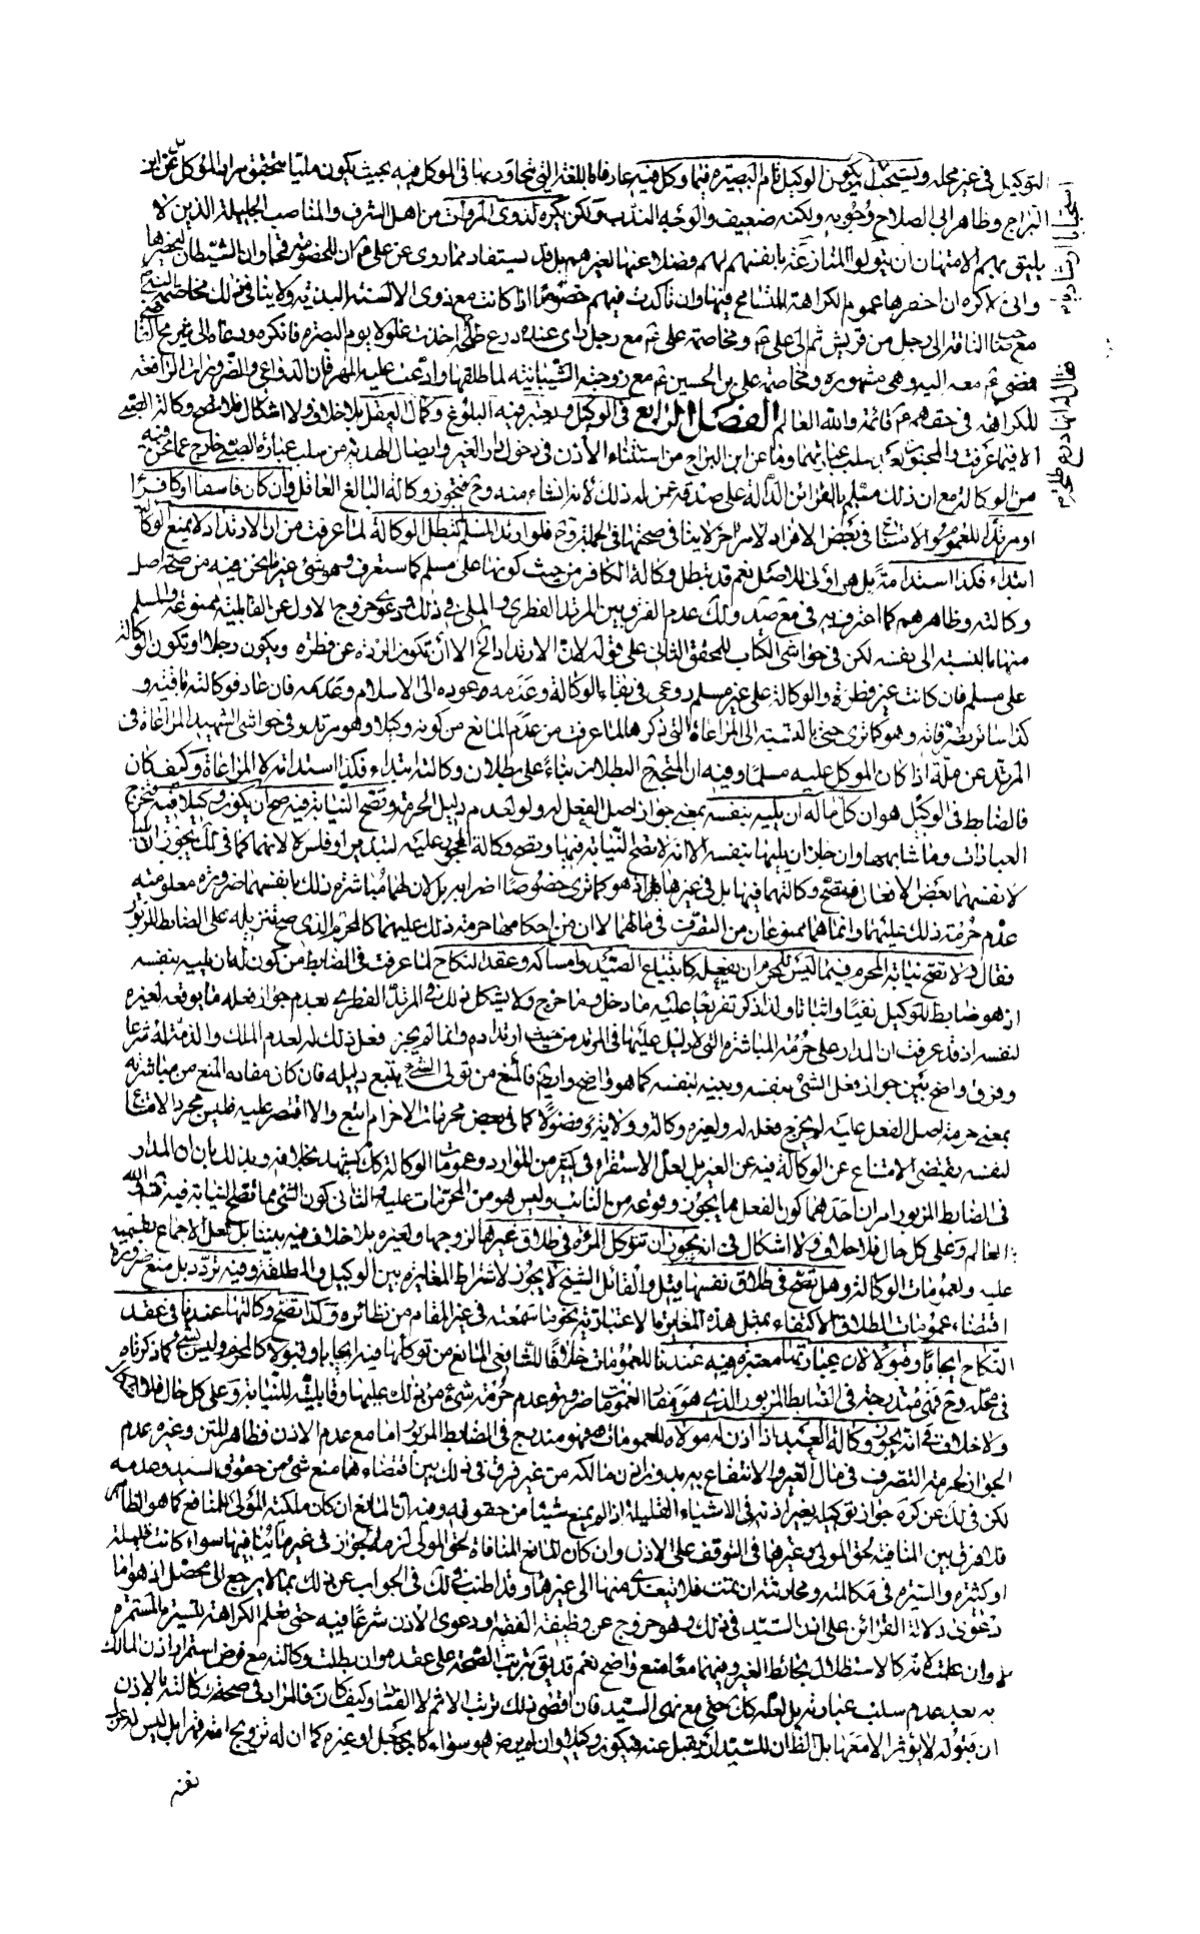 التوكيل في غير محله ويستحب ان يكون الوكيل تام البصيرة فيما وكل فيه عارفا باللغة التي يحاور بها في الموكل فيه بحيث يكون مليا بتحقيق مراد الموكل بل عن ابن
البراج وظاهر ابي الصلاح وجوبه ولكنه ضعيف والوجه الندب ولكن يكره لذوي المروات من اهل الشرف والمناصب الجليلة الذين لا
يليق بهم الامتهان ان يتولوا المنازعة بانفسهم لهم فضلا عنها لغيرهم بل قد يستفاد مما روي عن علي ع ان للخصومة قحما وان الشيطان ليحضرها
واني لاكره ان احضرها عموم الكراهة المتسامح فيها وان تاكدت فيهم خصوصا اذا كانت مع ذوي الالسنة البذية ولا ينافي ذلك مخاصمة النبي ص
مع صاحب الناقة الى رجل من قريش ثم الى علي ع ومخاصمة علي ع مع رجل راى عنده درع طلحة اخذت غلولا يوم البصرة فانكره ودعاه الى شريح
فمضى ع معه اليه وهي مشهورة ومخاصمة علي بن الحسين ع مع زوجته الشيبانية لما طلقها وادعت عليه المهر فان الدواعي والضرورات الرافعة
للكراهة في حقهم ع قائمة والله العالم الفصل الرابع في الوكيل ويعتبر فيه البلوغ وكمال العقل بلا خلاف ولا اشكال فلا تصح وكالة الصبي
الا فيما عرفت والمجنون لسلب عبارتهما وما عن ابن البراج من استثناء الاذن في دخول دار الغير وايصال الهدية من سلب عبارة الصبي خارج عما نحن فيه
من الوكالة مع ان ذلك مسلم بالقرائن الدالة على صدقه عمن له ذلك لا الانشاء منه وح فتجوز وكالة البالغ العاقل وان كان فاسقا او كافرا
او مرتدا للعموم والامتناع في بعض الافراد لامر اخر لا ينافي صحتها في الجملة وح فلو ارتد المسلم لم تبطل الوكالة لما عرفت من ان الارتداد لا يمنع الوكالة
ابتداء فكذا استدامة بل هو اولى للاصل نعم قد تبطل وكالة الكافر من حيث كونها على مسلم كما ستعرف وهو شيء غير ما نحن فيه من صحة اصل
وكالته وظاهرهم كما اعترف به في مع صد ولك عدم الفرق بين المرتد الفطري والملي في ذلك ودعوى خروج الاول عن القابلية ممنوعة والمسلم
منها ما بالنسبة الى نفسه لكن في حواشي الكتاب للمحقق الثاني على قوله لان الارتداد الخ الا ان تكون الردة عن فطرة ويكون رجلا او تكون الوكالة
على مسلم فان كانت عن غير فطرة والوكالة على غير مسلم روعي في بقاء الوكالة وعدمه عوده الى الاسلام وعدمه فان عاد فوكالته باقية و
كذا سائر تصرفاته وهو كما ترى حتى بالنسبة الى المراعاة التي ذكرها لما عرفت من عدم المانع من كونه وكيلا وهو مرتد وفي حواشي الشهيد المراعاة في
المرتد عن ملة اذا كان الموكل عليه مسلما وفيه ان المتجه ح البطلان بناء على بطلان وكالته ابتداء فكذا استدامة لا المراعاة وكيف كان
فالضابط في الوكيل هو ان كل ماله ان يليه بنفسه بمعنى جواز اصل الفعل له ولو لعدم دليل الحرمة وتصح النيابة فيه صح ان يكون وكيلا فيه فتخرج
العبادات وما شابهها وان جاز ان يليها بنفسه الا انه لا تصح النيابة فيها وتصح وكالة المحجور عليه لتبذير او فلس لا
لانفسهما بعض الافعال فتصح وكالتهما فيها بل في غيرها اذ هو كما ترى خصوصا اضرابه بل لان لهما مباشرة ذلك بانفسهما ضرورة معلومية
عدم حرمة ذلك عليهما وانما هما ممنوعان من التصرف في مالهما لا ان من احكامهما حرمة ذلك عليهما كالمحرم الذي صح تنزيله على الضابط المزبور
فقال ولا تصح نيابة المحرم فيما ليس للمحرم ان يفعله كابتياع الصيد وامساكه وعقد النكاح لما عرفت في الضابط من كون له ان يليه بنفسه
اذ هو ضابط للتوكيل نفيا واثباتا ولذا ذكر تفريعا عليه ما دخل وما خرج ولا يشكل ذلك في المرتد الفطري بعدم جواز فعله ما يوقعه لغيره
لنفسه اذ قد عرفت ان المدار على حرمة المباشرة التي لا دليل عليها في المرتد من حيث ارتداده وانما لم يجز فعل ذلك له لعدم الملك والذمة له شرعا
وفرق واضح بين جواز فعل الشيء بنفسه وبينه لنفسه كما هو واضح واريد فالمنع من تولي الشيء يتبع دليله فان كان مفاده المنع من مباشرته
بمعنى حرمة اصل الفعل عليه لم يجز فعله له ولغيره وكالة وولاية وفضولا كما في بعض محرمات الاحرام اتبع والا اقتصر عليه فليس مجرد الامتناع
لنفسه يقتضي الامتناع عن الوكالة فيه عن الغير بل لعل الاستقراء في كثير من الموارد وعمومات الوكالة كل يشهد بخلافه وبذلك بان ان المدار
في الضابط المزبور امران احدهما كون الفعل مما يجوز وقوعه من النائب وليس هو من المحرمات عليه والثاني كون الشيء مما تصح النيابة فيه والله
العالم وعلى كل حال فلا خلاف ولا اشكال في انه يجوز ان تتوكل المرءة في طلاق غيرها لزوجها ولغيره بلا خلاف فيه بيننا بل لعل الاجماع بقسميه
عليه ولعمومات الوكالة وهل تصح في طلاق نفسها قيل والقائل الشيخ لا يجوز لاشتراط المغايرة بين الوكيل والمطلقة وفيه تردد بل منع ضرورة
اقتضاء عمومات الطلاق الاكتفاء بمثل هذه المغايرة الاعتبارية نحو ما سمعته في غير المقام من نظائره وكذا تصح وكالتها عندنا في عقد
النكاح ايجابا وقبولا لان عبارتها معتبرة فيه عندنا للعمومات خلافا للشافعي المانع من توكيلها فيه ايجابا وقبولا كالمحرم وليس بشيء كما ذكرناه
في محله وح فهي مندرجة في الضابط المزبور الذي هو مفاد العمومات ضرورة عدم حرمة شيء من ذلك عليها وقابليته للنيابة وعلى كل حال فلا اشكال
ولا خلاف في انه يجوز وكالة العبد اذا اذن له مولاه للعمومات فهو مندرج في الضابط المزبور اما مع عدم الاذن فظاهر المتن وغيره عدم
الجواز لحرمة التصرف في مال الغير والانتفاع به بدون اذن مالكه من غير فرق في ذلك بين اقتضاءها منع شيء من حقوق السيد وعدمه
لكن في لك عن كره جواز توكيله بغير اذنه في الاشياء القليلة اذا لم يمنع شيئا من حقوقه وفيه ان المانع ان كان ملكية المولى للمنافع كما هو الظاهر
فلا فرق بين المنافية لحق المولى وغيرها في التوقف على الاذن وان كان المانع المنافاة لحق المولى لزمه الجواز في غير ما ينافيها سواء كانت قليلة
او كثيرة والسيرة في مكالمته ومحادثته ان تمت فلا تتعدى منها الى غيرها وقد اطنب ولك في الجواب عن ذلك بما لا يرجع الى محصل اذ هو اما
دعوى دلالة القرائن على اذن السيد في ذلك وهو خروج عن وظيفة الفقه او دعوى الاذن شرعا فيه حتى مع علم الكراهة للسيرة المستمرة
وان علمت لانه كالاستظلال بحائط الغير وفيهما معا منع واضح نعم قد يق بترتب الصحة على عقده وان بطلت وكالته مع فرض استمرار اذن المالك
به بعد عدم سلب عبارته بل لعله كك حتى مع نهي السيد فان اقصى ذلك ترتب الاثم لا الفساد وكيف كان فالمراد في صحة وكالته بالاذن
ان قبوله لا يؤثر الا معها بل الظان للسيد ان يقبل عنه فيكون وكيلا وان لم يرض هو سواء كان بجعل او غيره كما ان له تزويج امته قهرا بل ليس له عزل
نفسه